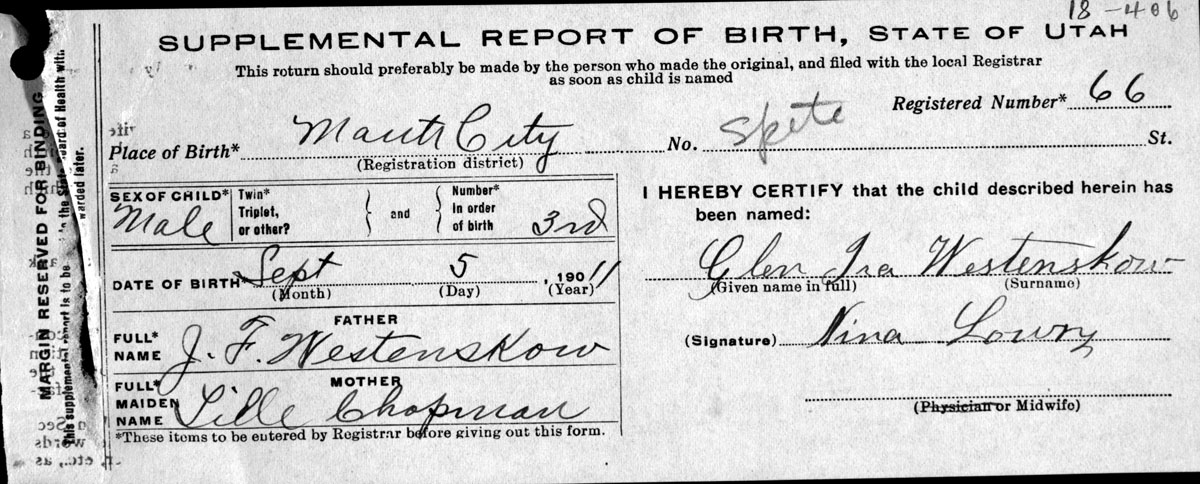 18-406
SUPPLEMENTAL REPORT OF BIRTH, STATE OF UTAH
This return should preferably be made by the person who made the original, and filed with the local Registrar
as soon as child is named
Registered Number* 66
Place of Birth* Manti City No. St.
(Registration district)
SEX OF CHILD* Male
Twin*
Triplet,
or other?
and
Number*
In order
of birth 3rd
DATE OF BIRTH Sept 5, 1911
(Month) (Day) (Year)
FATHER
FULL*
NAME J. F. Westenskow
MOTHER
FULL*
MAIDEN
NAME Lille Chapman
*These items to be entered by Registrar before giving out this form.
I HEREBY CERTIFY that the child described herein has
been named:
Glen Ira Westenskow
(Given name in full) (Surname)
(Signature) Nina Lowry
(Physician or Midwife)
MARGIN RESERVED FOR BINDING
This supplemental report is to be
warded later.